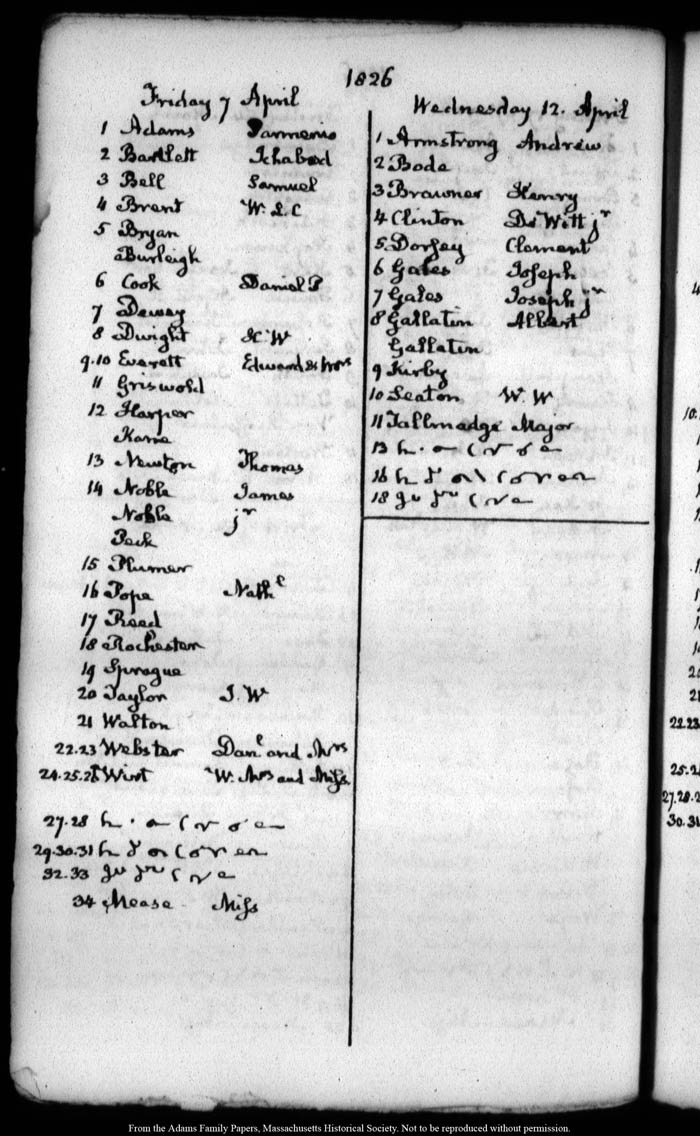 1826
Friday 7 April
1 Adams Parmenio
2 Bartlett Ichabod
3 Bell Samuel
4 Brent W. L. C
5 Bryan
Burleigh
6 Cook Daniel P
7 Dewey
8 Dwight H W
9.10 Everett Edward & Mrs
11 Griswold
12 Harper
Kane
13 Newton Thomas
14 Noble James
Noble jr
Peck
15 Plumer
16 Pope Nathl
17 Reed
18 Rochester
19 Sprague
20 Taylor J. W
21 Walton
22.23 Webster Danl and Mrs
24.25.26 Wirt W. Mrs and Miss
27.28
29.30.31
32.33
34 Mease Miss
Wednesday 12. April
1 Armstrong Andrew
2 Bode
3 Brawner Henry
4 Clinton De Witt jr
5 Dorsey Clement
6 Gales Joseph
7 Gales Joseph jr
8 Gallatin Albert
Gallatin
9 Kirby
10 Seaton W. W
11 Tallmadge Major
13
16
18
10.
22.23
25.2
27.28.2
30.31
From the Adams Family Papers, Massachusetts Historical Society. Not to be reproduced without permission.